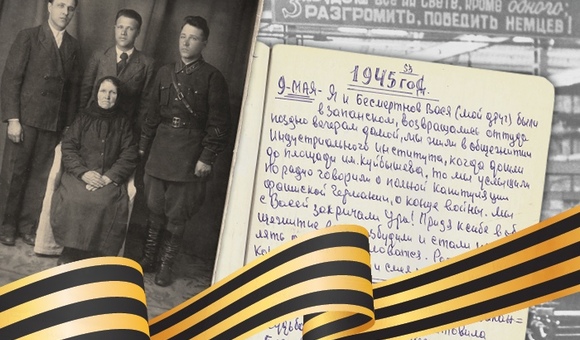 все на свете, кроме одного:
РАЗГРОМИТЬ, ПОБЕДИТЬ НЕМЦЕВ!
53
1945 год.
9-МАЯ- Я и Бесмертнов Вася (мой друг) были
в запанском, возвращались оттуда
поздно вечером домой, мы жили в общежитии
Индустриального института, когда дошли
до площади им. Куйбышева, то мы услышали
по радио говорили о полной капитуляции
фашисской Германии, о конце войны. Мы
с Васей закричали Ура! Придя к себе в об
щежитие и стали